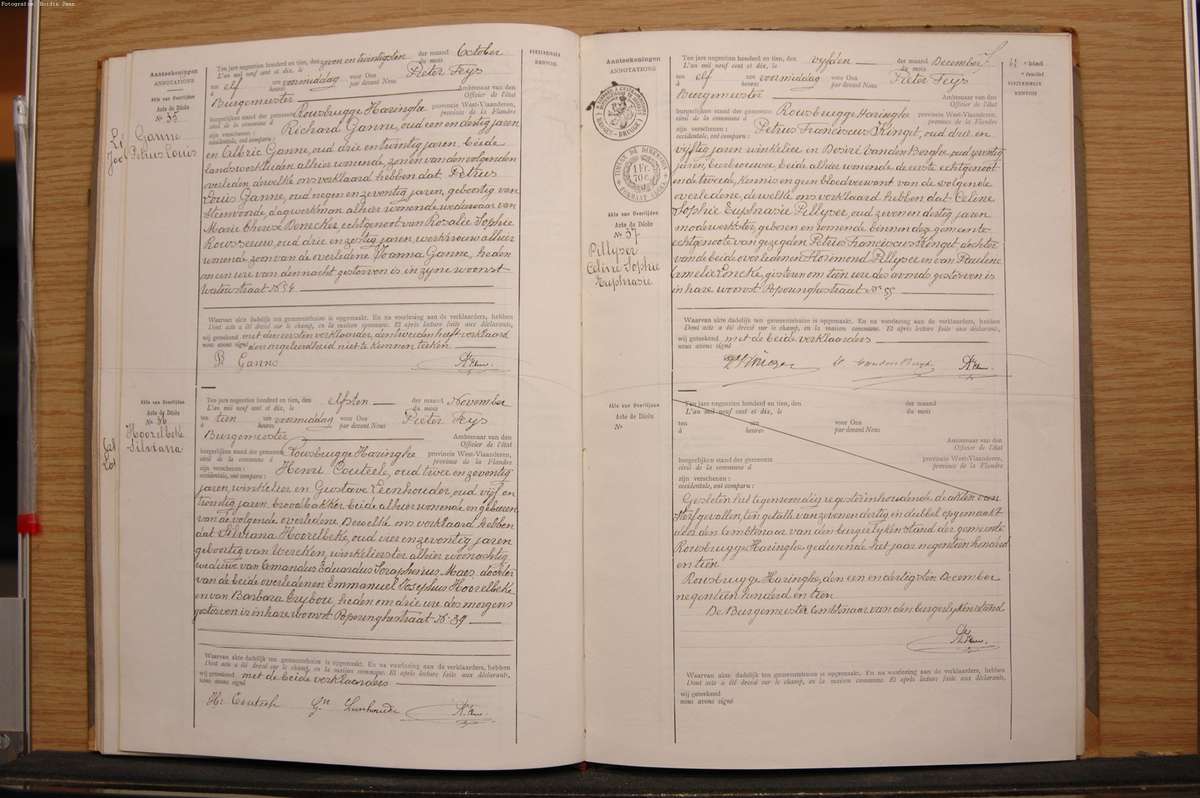 Fotografie: Boidin Daan
Aanteekeningen
ANNOTATIONS
Akte van Overlijden
Acte de Décès
N° 35
Ganne
Petrus Louis
Ten jare negentien honderd en tien, den zeven en twintigsten der maand October
L'an mil neuf cent et dix, le du mois
ten elf ure voormiddag voor Ons Pieter Feys
à heures par devant Nous
Burgemeester Ambtenaar van den
Officier de l'état
burgerlijken stand der gemeente Rousbrugge Haringhe provincie West-Vlaanderen,
civil de la commune d province de la Flandre
zijn verschenen: Richard Ganne, oud een en dertig jaren
occidentale, ont comparu:
en Albric Ganne, oud drie en twintig jaren, beide
landswerklieden alhier wonende, zonen van den volgenden
overleden, dewelke ons verklaard hebben dat Petrus
Louis Ganne, oud negen en zeventig jaren, geboortig van
Steenvoorde, dagwerkman, alhier wonende, weduwaar van
Marie Therese Denecker, echtgenoot van Rosalie Sophie
Rousseeuw, oud drie en zestig jaren, werkvrouw alhier
wonende, zoon van de overledene Joanna Ganne, heden
om een ure van den nacht gestorven is in zyne woonst
Waterstraat N° 54
Waarvan akte dadelijk ten gemeentehuize is opgemaakt. En na voorlezing aan de verklaarders, hebben
Dont acte a été dressé sur le champ, en la maison commune. Et après lecture faite aux déclarants,
wij geteekend met den eersten verklaarder, den tweeden heeft verklaard
nous avons signé
door ongeleerdheid niet te kunnen teeken
R Ganne
Akte van Overlijden
Acte de Décès
N° 36
Hoorelbeke
Silviana
Ten jare negentien honderd en tien, den elfsten der maand November
L'an mil neuf cent et dix, le du mois
ten tien ure voormiddag voor Ons Pieter Feys
à heures par devant Nous
Burgemeester Ambtenaar van den
Officier de l'état
burgerlijken stand der gemeente Rousbrugge Haringhe provincie West-Vlaanderen,
civil de la commune d province de la Flandre
zijn verschenen: Henri Couteele, oud twee en zeventig
occidentale, ont comparu:
jaren, winkelier en Gustave Leenhouder, oud vyf en
twintig jaren, broodbakker, beide alhier wonende, en geburen
van de volgende overledene. Dewelke ons verklaard hebben
dat Silviana Hoorelbeke, oud vier en zeventig jaren
geboortig van Wercken, winkelierster alhier woonachtig
weduwe van Amandus Eduardus Seraphinus Maes, dochter
van de beide overledenen Emmanuel Josephus Hoorelbeke
en van Barbara heden om drie ure des morgens
gestorven is in hare woonst Poperinghestraat N° 89
Waarvan akte dadelijk ten gemeentehuize is opgemaakt. En na voorlezing aan de verklaarders, hebben
Dont acte a été dressé sur le champ, en la maison commune. Et après lecture faite aux déclarants,
wij geteekend met de beide verklaarders
nous avons signé
Aanteekeningen
ANNOTATIONS
TIMBRE DE DIMENSION
1 FR. 70 C.
Akte van Overlijden
Acte de Décès
N° 37
Pillyser
Celine Sophie
Euphrasie
Ten jare negentien honderd en tien, den vyfden der maand December
L'an mil neuf cent et dix, le du mois
ten elf ure voormiddag voor Ons Pieter Feys
à heures par devant Nous
Burgemeester Ambtenaar van den
Officier de l'état
burgerlijken stand der gemeente Rousbrugge Haringhe provincie West-Vlaanderen,
civil de la commune d province de la Flandre
zijn verschenen: Petrus Franciscus oud drie en
occidentale, ont comparu:
vyftig jaren, winkelier en Desiré Vanden Berghe, oud zeventig
jaren, beide alhier wonende, de eerste echtgenoot
en de tweede, kennis en geen bloedverwant van de volgende
overledene, dewelke ons verklaard hebben dat Celine
Sophie Euphrasie Pillyser, oud zeven en dertig jaren
modewerkster, geboren en wonende binnen deze gemeente
echtgenoote van gezegden Petrus Franciscus dochter
van de beide overledenen Florimond Pillyser en van Pauline
gisteren om tien ure des avonds gestorven is
in hare woonst Poperinghestraat N° 55
Waarvan akte dadelijk ten gemeentehuize is opgemaakt. En na voorlezing aan de verklaarders, hebben
Dont acte a été dressé sur le champ, en la maison commune. Et après lecture faite aux déclarants,
wij geteekend met de beide verklaarders
nous avons signé
Akte van Overlijden
Acte de Décès
N°
Ten jare negentien honderd en tien, den der maand
L'an mil neuf cent et dix, le du mois
ten ure voor Ons
à heures par devant Nous
Ambtenaar van den
Officier de l'état
burgerlijken stand der gemeente provincie West-Vlaanderen,
civil de la commune d province de la Flandre
zijn verschenen:
occidentale, ont comparu:
Gesloten het tegenwoordig register inhoudende de akten van
sterfgevallen, ten getalle van zeven en dertig in dubbel opgemaakt
door den Ambtenaar van den burgerlyken stand der gemeente
Rousbrugge Haringhe gedurende het jaar negentien honderd
en tien.
Rousbrugge Haringhe, den een en dertigsten December
negentien honderd en tien
De Burgemeester Ambtenaar van den burgerlyken stand
Waarvan akte dadelijk ten gemeentehuize is opgemaakt. En na voorlezing aan de verklaarders, hebben
Dont acte a été dressé sur le champ, en la maison commune. Et après lecture faite aux déclarants,
wij geteekend
nous avons signé